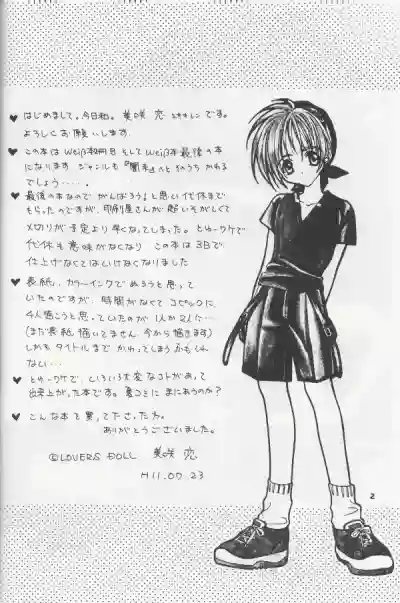 ♥ はじめまして。今日和。美咲 恋 とゆれン です。
よろしくお願いします。
♥ この本は Weiβ初冊目 そして Weiβ本最後の本
になります ジャンルも へと そのうち かわる
でしょう……。
♥ 最後の本なので がんばろう!と思い 代休まで
もらったのですが、印刷屋さんが 忙しくて
〆切りが予定より 早くなってしまった。とゆーワケで
代休も意味がなくなり この本は3日で
仕上げなくてはいけなくなりました
♥ 表紙、カラーインクでぬろうと思って
いたのですが、時間がなくてコピックに。
4人描こうと思っていたのが 1人か2人に…
(まだ表紙描いてません 今から描きます)
しかもタイトルまで かわってしまうかもしれ
ない…
♥ とゆーワケで、いろいろ大変なコトがあって
出来上がった本です。夏コミに まにあうのか?
♥ こんな本を買って下さった方。
ありがとうございました。
©LOVERS DOLL 美咲 恋
H11.07.23
2